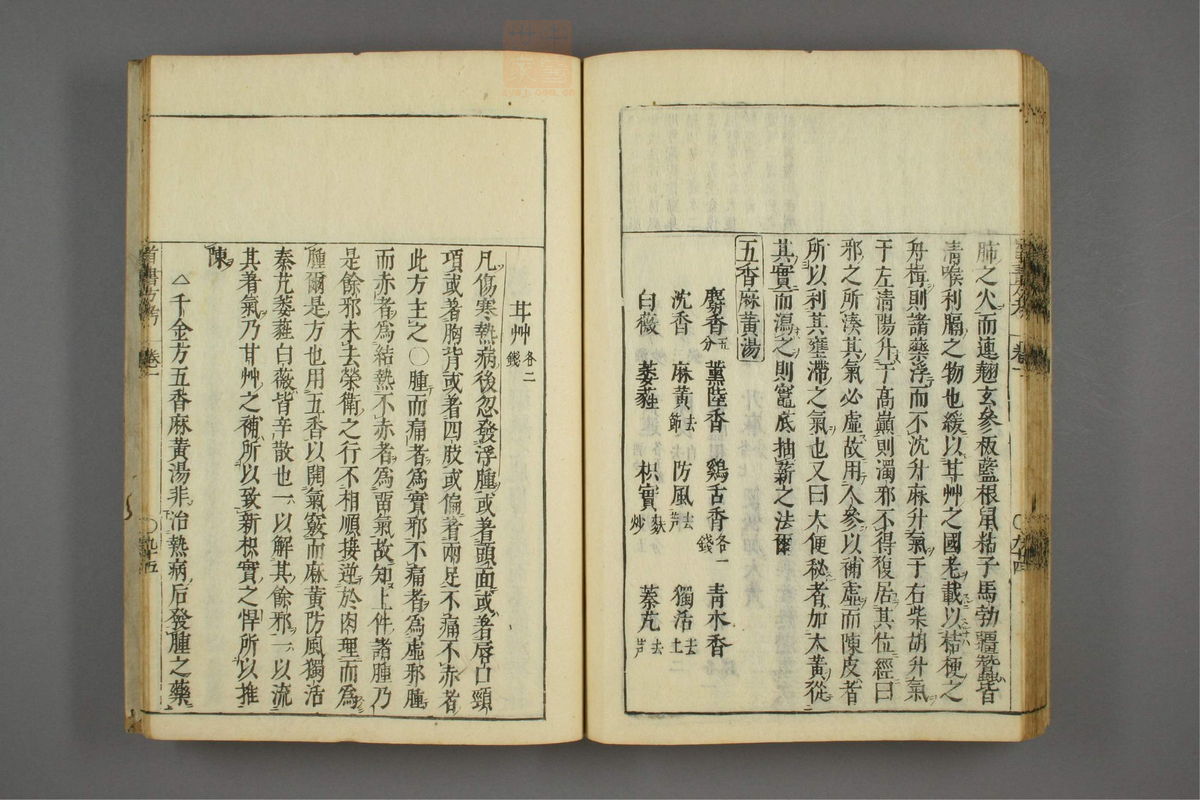 肺之火而連翹玄參板藍根鼠粘子馬勃殭蠶皆
清喉利膈之物也緩以甘艸之國老載以桔梗之
舟楫則諸藥浮而不沈升麻升氣于右柴胡升氣
于左清陽升于高巔則濁邪不得復居其位經曰
邪之所湊其氣必虛故用人參以補虛而陳皮者
所以利其壅滯之氣也又曰大便秘者加大黃從
其實而瀉之則竈底抽薪之法爾
五香麻黃湯
麝香五分 薰陸香 鷄舌香各一錢 青木香
沈香 麻黃去節 防風去芦 獨活去土二
白薇 萎蕤 枳實麩炒 秦艽去芦
甘艸各二錢
凡傷寒熱病後忽發浮腫或著頭面或著唇口頸
項或著胸背或著四肢或偏著兩足不痛不赤者
此方主之〇腫而痛者為實邪不痛者為虛邪腫
而赤者為結熱不赤者為留氣故知上件諸腫乃
是餘邪未去榮衛之行不相順接逆於肉理而為
腫爾是方也用五香以開氣竅而麻黃防風獨活
秦艽萎蕤白薇皆辛散也一以解其餘邪一以流
其著氣乃甘艸之補所以致新枳實之悍所以推
陳
△千金方五香麻黃湯非治熱病后發腫之藥
卷一
〇九十四
卷一
〇九十五